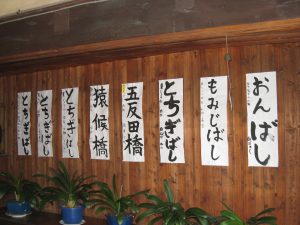 おんばし
もみじばし
とちぎばし
五反田橋
猿候橋
とちぎばし
とちぎばし
とちぎばし